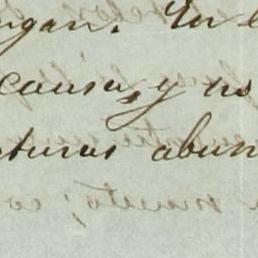 ngan. En l
causa, y no
cturas abun